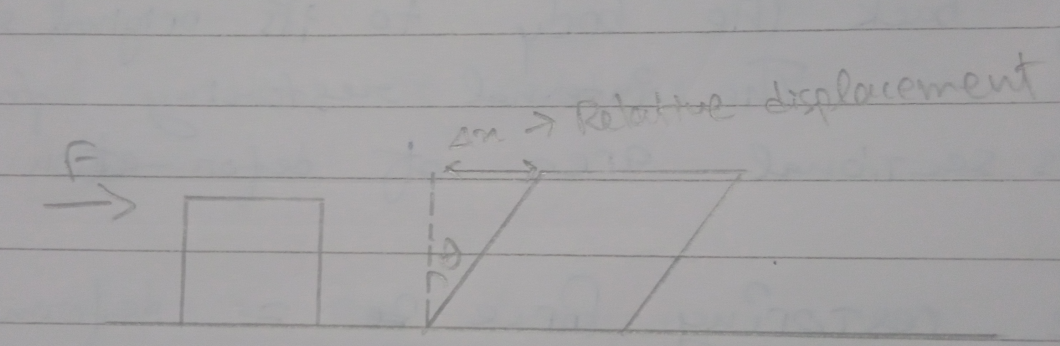 Δx → Relative displacement
F
θ